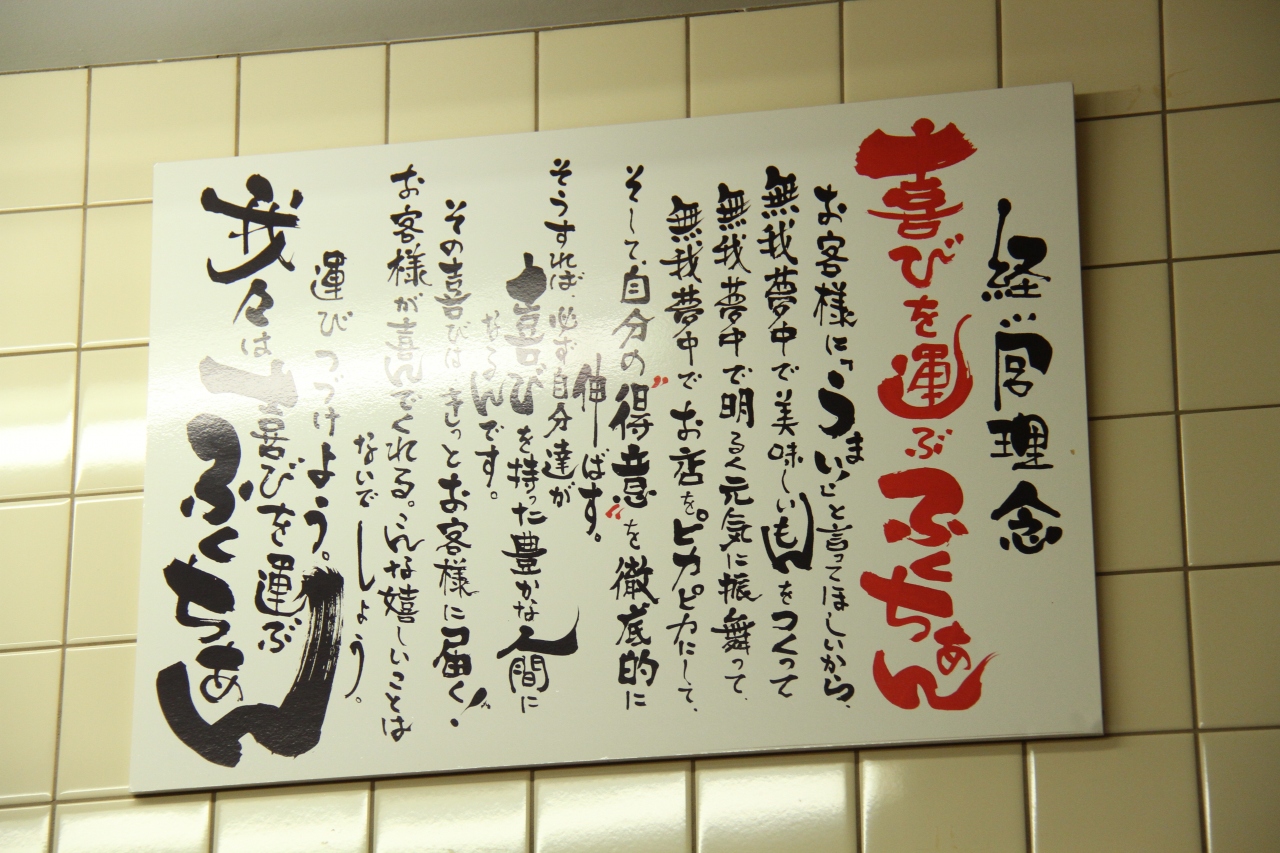 経営理念
喜びを運ぶふくちぁん
お客様に「うまい!」と言ってほしいから、
無我夢中で美味しいもんをつくって
無我夢中で明るく元気に振舞って、
無我夢中でお店をピカピカにして、
そして、自分の〝得意〟を徹底的に
伸ばす。
そうすれば、必ず自分達が
喜びを持った豊かな人間に
なるんです。
その喜びはきっとお客様に届く!
お客様が喜んでくれる。こんな嬉しいことは
ないでしょう。
運びつづけよう。
我々は喜びを運ぶ
ふくちぁん